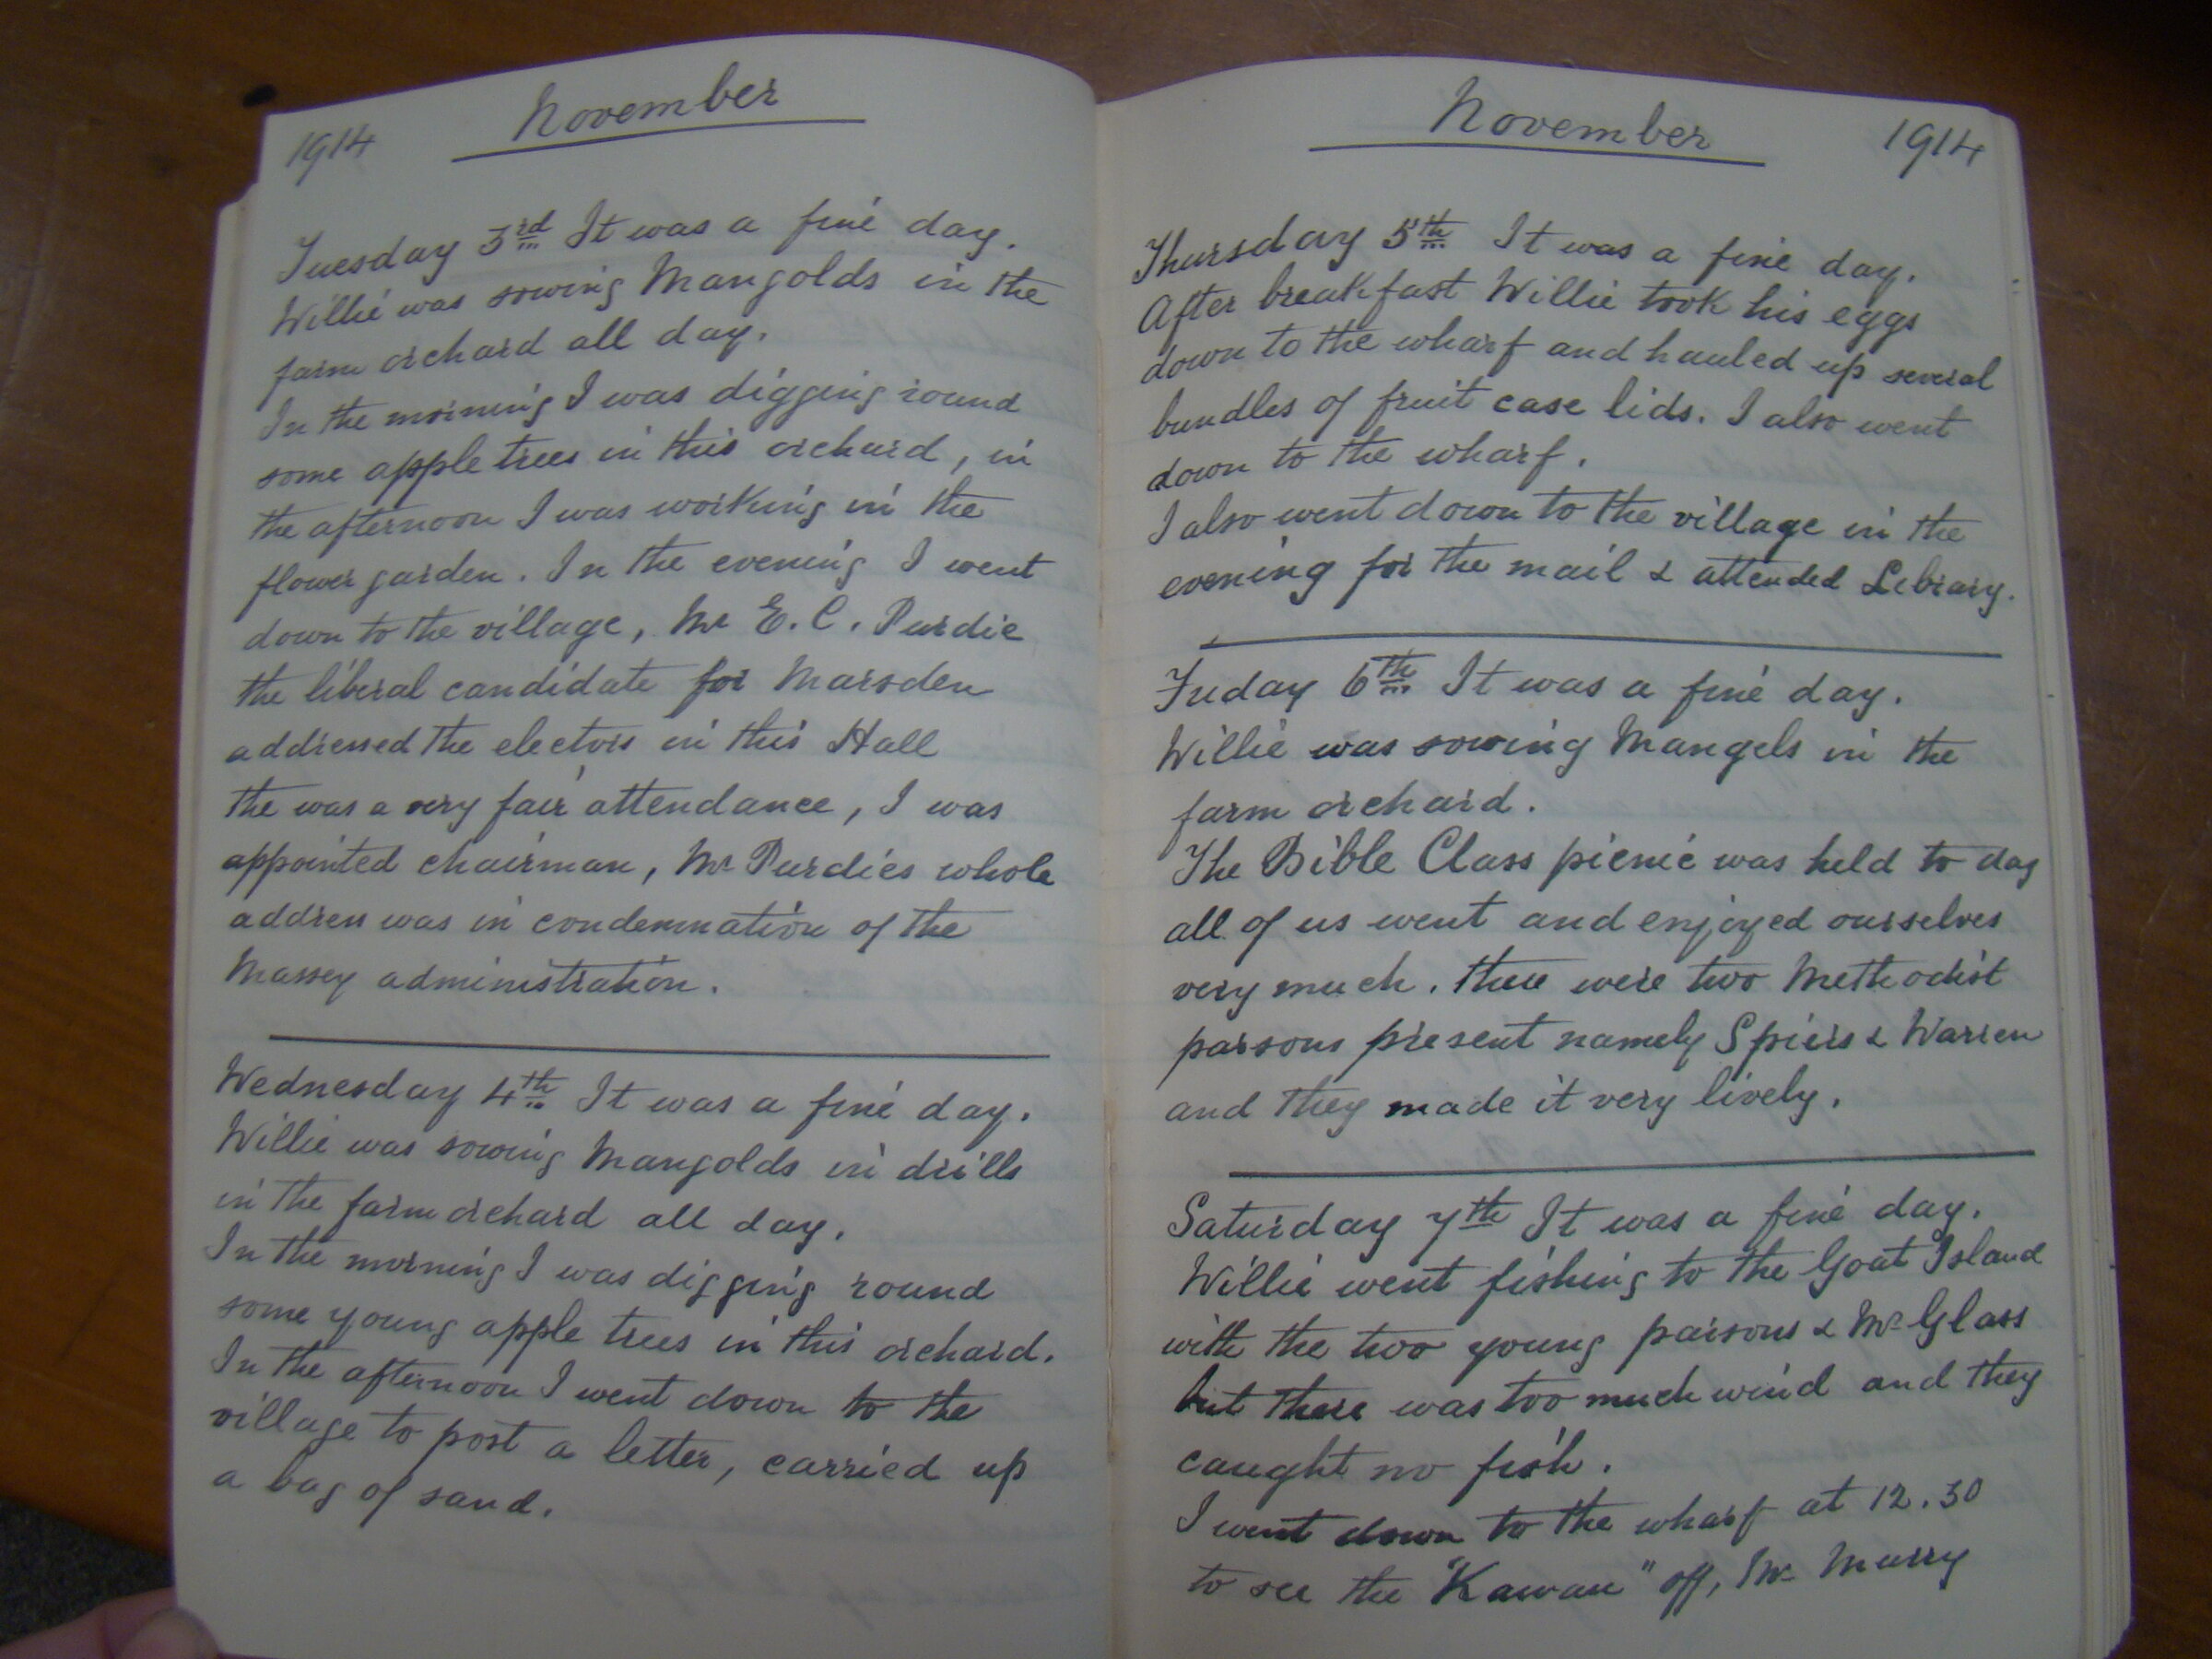 1914
November
Tuesday 3rd It was a fine day.
Willie was sowing Mangolds in the
farm orchard all day.
In the morning I was digging round
some apple trees in this orchard, in
the afternoon I was working in the
flower garden. In the evening I went
down to the village, Mr E. C. Purdie
the liberal candidate for Marsden
addressed the electors in this Hall
the was a very fair attendance, I was
appointed chairman, Mr Purdies whole
address was in condemnation of the
Massey administration.
Wednesday 4th It was a fine day.
Willie was sowing Mangolds in drills
in the farm orchard all day.
In the morning I was digging round
some young apple trees in this orchard.
In the afternoon I went down to the
village to post a letter, carried up
a bag of sand.
November
1914
Thursday 5th It was a fine day.
After breakfast Willie took his eggs
down to the wharf and hauled up several
bundles of fruit case lids. I also went
down to the wharf.
I also went down to the village in the
evening for the mail & attended Library.
Friday 6th It was a fine day.
Willie was sowing Mangels in the
farm orchard.
The Bible Class picnic was held to day
all of us went and enjoyed ourselves
very much. there were two Methodist
parsons present namely Spiers & Warren
and they made it very lively.
Saturday 7th It was a fine day.
Willie went fishing to the Goat Island
with the two young parsons & Mr Glass
but there was too much wind and they
caught no fish.
I went down to the wharf at 12.30
to see the "Kawau" off, Mr Murry